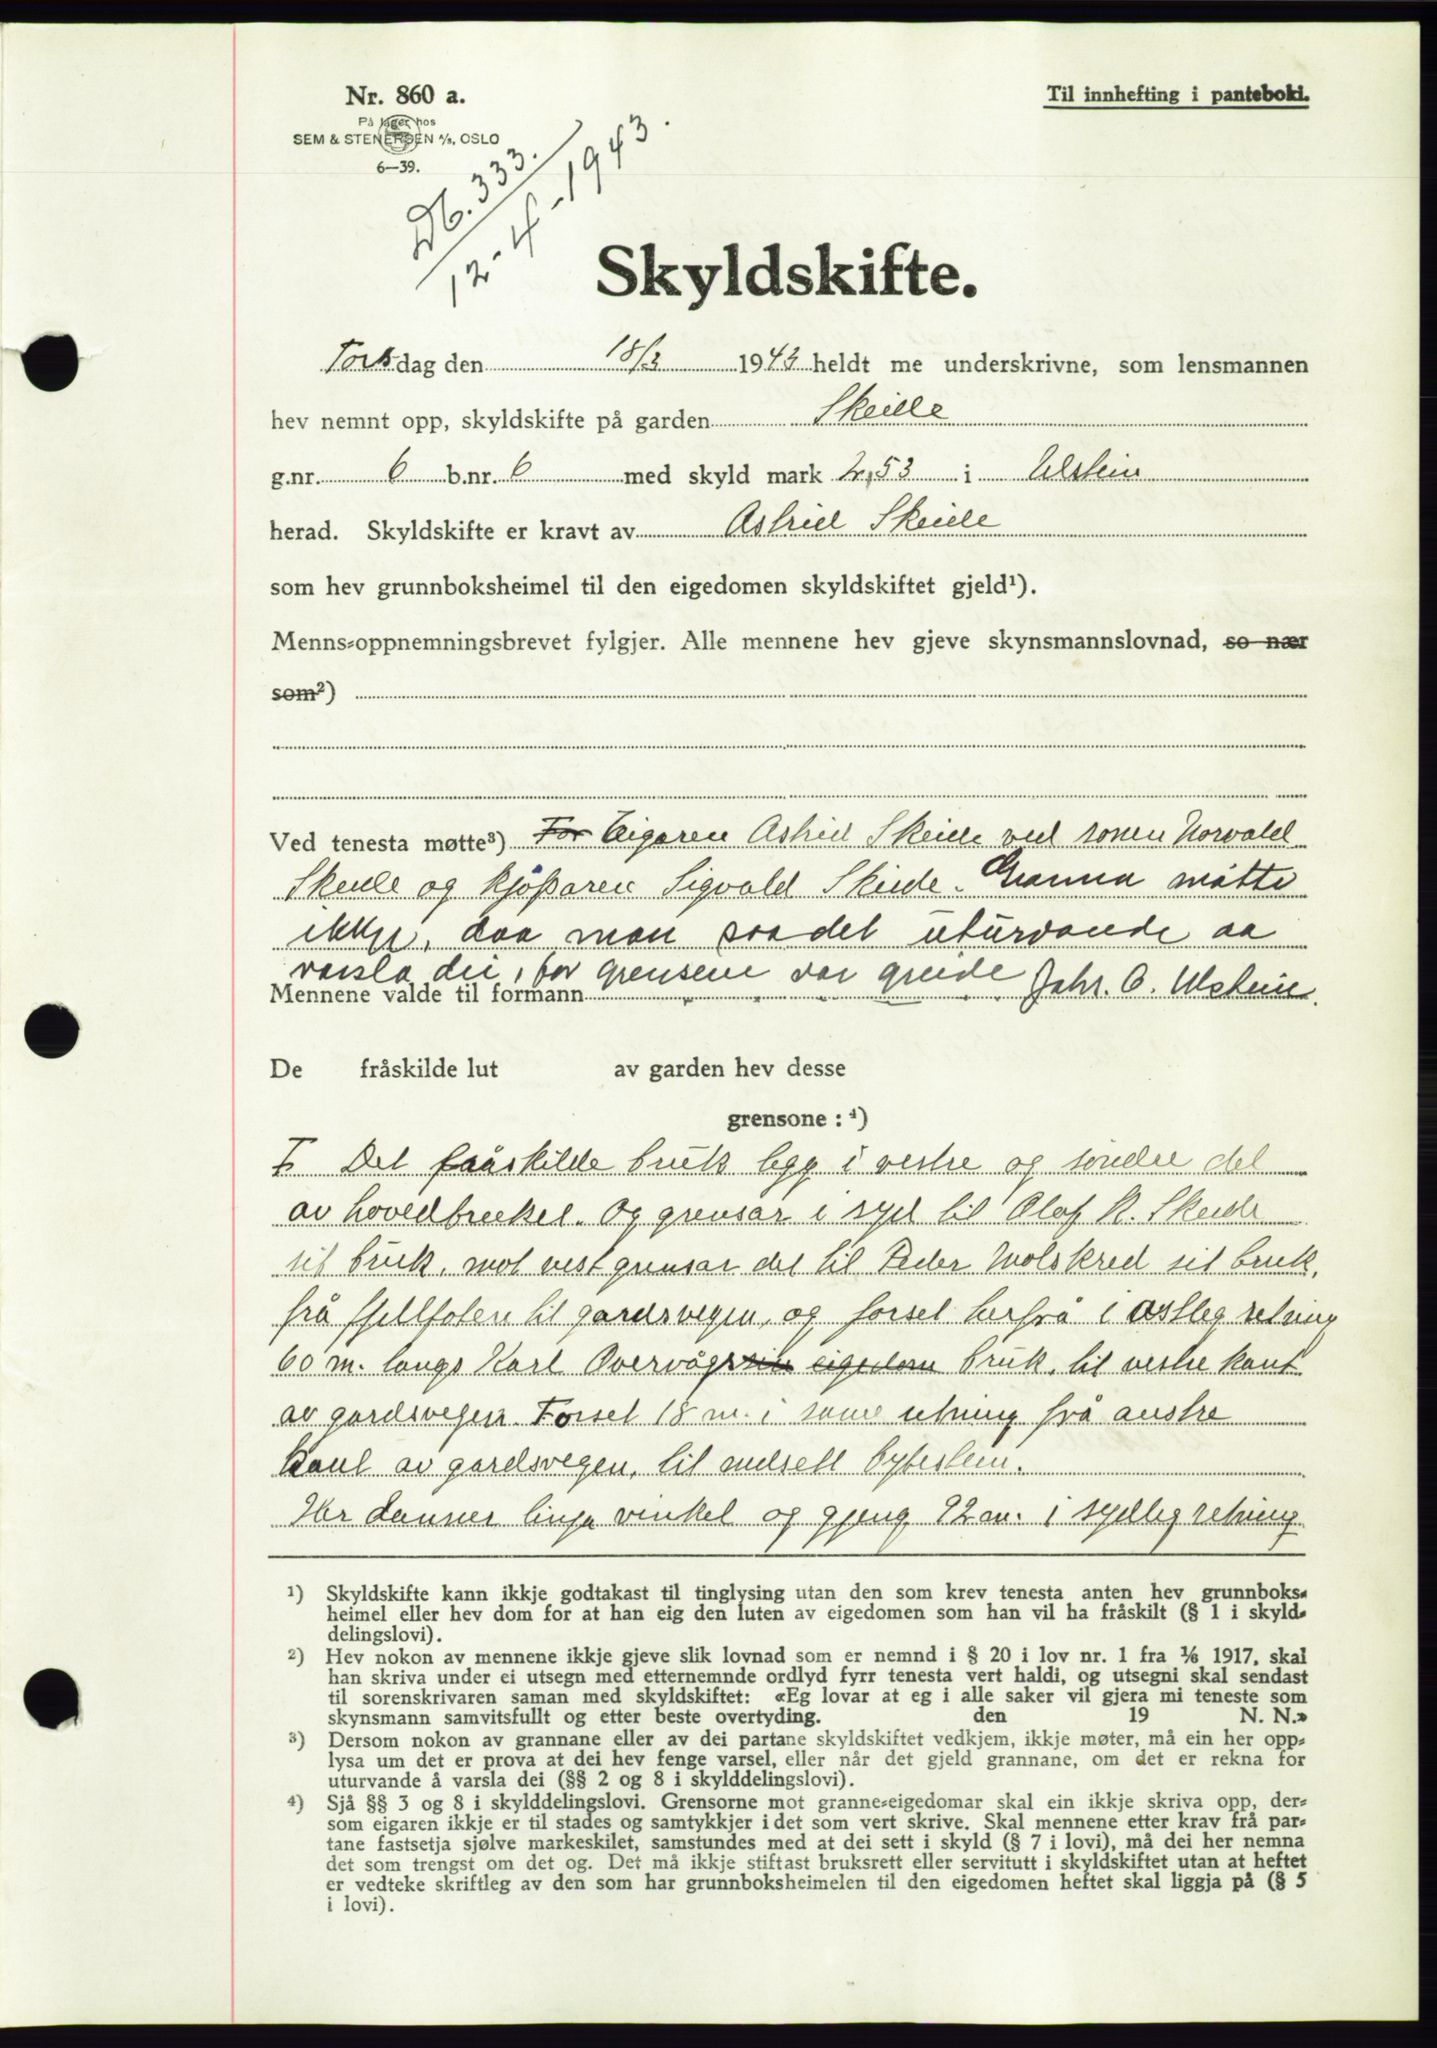 Nr. 860 a.
På lager hos
SEM & STENERSEN A/S, OSLO
6—39.
Til innhefting i panteboki.
Db. 333.
12-4-1943.
Skyldskifte.
Torsdag den 18/3 1943 heldt me underskrivne, som lensmannen
hev nemnt opp, skyldskifte på garden Skeide
g.nr. 6 b.nr. 6 med skyld mark 2,53 i Ulstein
herad. Skyldskifte er kravt av Astrid Skeide
som hev grunnboksheimel til den eigedomen skyldskiftet gjeld¹).
Menns-oppnemningsbrevet fylgjer. Alle mennene hev gjeve skynsmannslovnad, so nær
som²)
Ved tenesta møtte³) For Eigaren Astrid Skeide ved sonen Norvald
Skeide og kjøparen Sigvald Skeide. Granna møtte
ikkje, daa man saa det uturvande aa
varsla dei, for grensene var greide
Mennene valde til formann Johs. O. Ulstein.
De fråskilde lut av garden hev desse
grensone : ⁴)
Det fråskilde bruk ligg i vestre og søndre del
av hovedbruket. Og grensar i syd til Olaf K. Skeide
sit bruk, mot vest grensar det til Peder Wolskred sit bruk,
frå fjellfoten til gardsvegen, og forset herfrå i austleg retning
60 m. langs Karl Overvåg sin eigedom bruk, til vestre kant
av gardsvegen. Forset 18 m. i same retning frå austre
kant av gardsvegen, til nedsett bytestein.
Her danner linja vinkel og gjeng 92 m. i sydleg retning
¹) Skyldskifte kann ikkje godtakast til tinglysing utan den som krev tenesta anten hev grunnboks-
heimel eller hev dom for at han eig den luten av eigedomen som han vil ha fråskilt (§ 1 i skyld-
delingslovi).
²) Hev nokon av mennene ikkje gjeve slik lovnad som er nemnd i § 20 i lov nr. 1 fra 1/6 1917, skal
han skriva under ei utsegn med etternemnde ordlyd fyrr tenesta vert haldi, og utsegni skal sendast
til sorenskrivaren saman med skyldskiftet: «Eg lovar at eg i alle saker vil gjera mi teneste som
skynsmann samvitsfullt og etter beste overtyding. den 19 N. N.»
³) Dersom nokon av grannane eller av dei partane skyldskiftet vedkjem, ikkje møter, må ein her opp-
lysa um det er prova at dei hev fenge varsel, eller når det gjeld grannane, om det er rekna for
uturvande å varsla dei (§§ 2 og 8 i skylddelingslovi).
⁴) Sjå §§ 3 og 8 i skylddelingslovi. Grensorne mot granne-eigedomar skal ein ikkje skriva opp, der-
som eigaren ikkje er til stades og samtykkjer i det som vert skrive. Skal mennene etter krav frå par-
tane fastsetja sjølve markeskilet, samstundes med at dei sett i skyld (§ 7 i lovi), må dei her nemna
det som trengst om det og. Det må ikkje stiftast bruksrett eller servitutt i skyldskiftet utan at heftet
er vedteke skriftleg av den som har grunnboksheimelen til den eigedomen heftet skal liggja på (§ 5
i lovi).